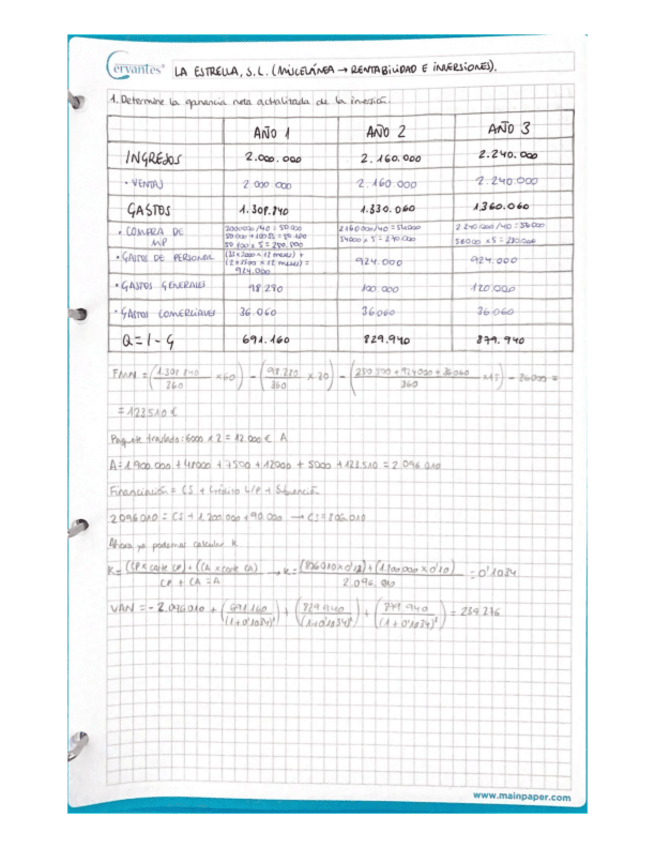 Cervantes®
LA ESTRELLA, S.L. (MISCELÁNEA → RENTABILIDAD E INVERSIONES).
1. Determine la ganancia neta actualizada de la inversión.
AÑO 1 AÑO 2 AÑO 3
INGRESOS 2.000.000 2.160.000 2.240.000
• VENTAS 2.000.000 2.160.000 2.240.000
GASTOS 1.308.840 1.330.060 1.360.060
• COMPRA DE MP
2000000/40 = 50.000
50.100 x 5 = 250.500
2160000/40 = 54000
54000 x 5 = 270.000
2.240.000/40 = 56000
56000 x 5 = 280.000
• GASTOS DE PERSONAL
924.000 924.000 924.000
• GASTOS GENERALES 98.280 100.000 120.000
• GASTOS COMERCIALES 36.060 36060 36.060
Q = I - G 691.160 829.940 879.940
= 123.510 €
Paquete traslado: 6000 x 2 = 12.000 € A
A = 1.900.000 + 48000 + 7500 + 12000 + 5000 + 123.510 = 2.096.010
Financiación = CS + Crédito L/P + Subvención
2096010 = CS + 1.200.000 + 90.000 → CS = 806.010
Ahora ya podemos calcular K
= 0'1034
VAN = - 2.096010 + (691.160 / (1 + 0'1034)¹) + (829940 / (1 + 0'1034)²) + (879.940 / (1 + 0'1034)³) = 239.276
www.mainpaper.com